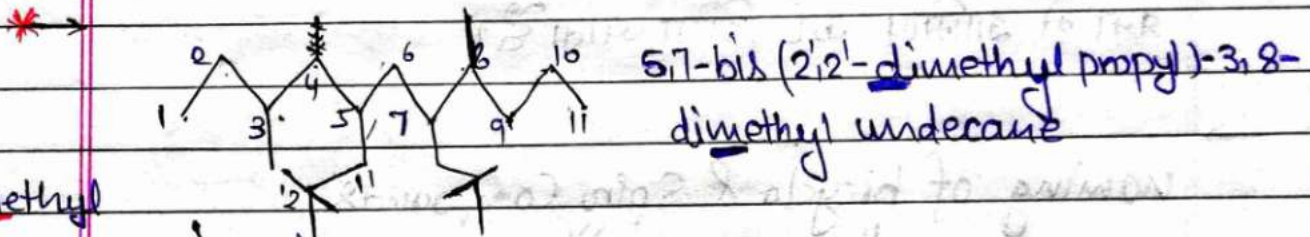 2 6 8 10
4
1 3 5 7 9 11
5,7-bis (2',2'-dimethyl propyl)-3,8-
dimethyl undecane
'2 1'
ethyl